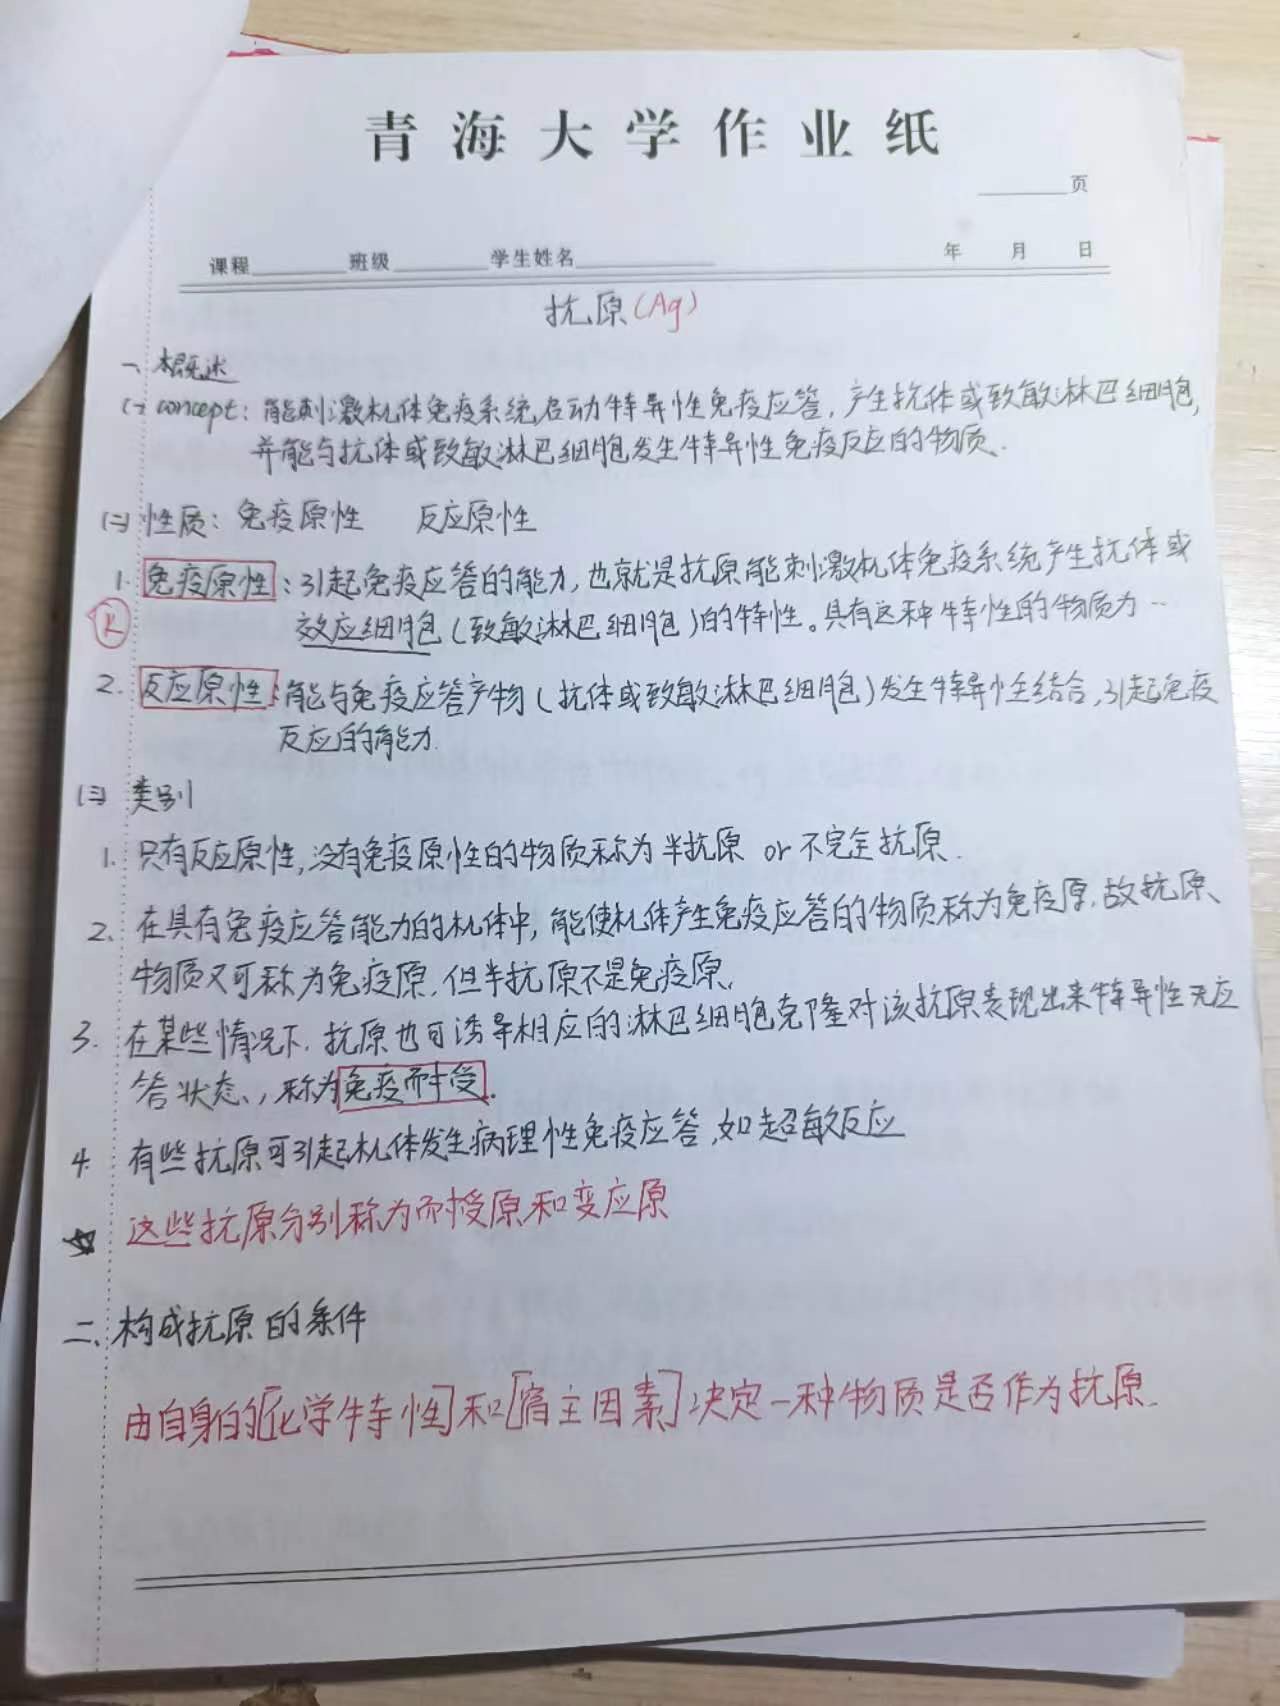 青海大学作业纸
页
课程 班级 学生姓名 年 月 日
抗原(Ag)
一、概述
(一) concept: 能刺激机体免疫系统,启动特异性免疫应答,产生抗体或致敏淋巴细胞,
并能与抗体或致敏淋巴细胞发生特异性免疫反应的物质.
(二) 性质: 免疫原性 反应原性
1. 免疫原性: 引起免疫应答的能力,也就是抗原能刺激机体免疫系统产生抗体或
效应细胞(致敏淋巴细胞)的特性。具有这种特性的物质为…
2. 反应原性: 能与免疫应答产物(抗体或致敏淋巴细胞)发生特异性结合,引起免疫
反应的能力.
(三) 类别
1. 只有反应原性,没有免疫原性的物质称为半抗原 or 不完全抗原.
2、在具有免疫应答能力的机体中,能使机体产生免疫应答的物质称为免疫原,故抗原、
物质又可称为免疫原,但半抗原不是免疫原、
3. 在某些情况下,抗原也可诱导相应的淋巴细胞克隆对该抗原表现出来特异性无应
答状态、,称为免疫耐受.
4. 有些抗原可引起机体发生病理性免疫应答,如超敏反应
☆ 这些抗原分别称为耐授原和变应原
二、构成抗原的条件
由自身的[化学特性]和[宿主因素]决定一种物质是否作为抗原.